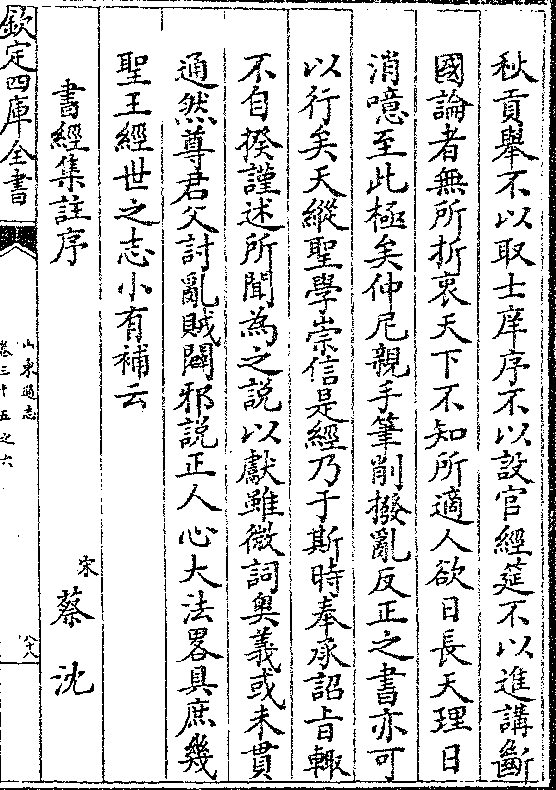 秋貢舉不以取士庠序不以設官經筵不以進講斷
國論者無所折衷天下不知所適人欲日長天理日
消噫至此極矣仲尼親手筆削撥亂反正之書亦可
以行矣天縱聖學崇信是經乃于斯時奉承詔旨輒
不自揆謹述所聞為之說以獻雖微詞奥義或未貫
通然尊君父討亂賊闢邪說正人心大法畧具庶幾
聖王經世之志小有補云
書經集註序
宋 蔡沈
欽定四庫全書
山東通志
卷三十五之六